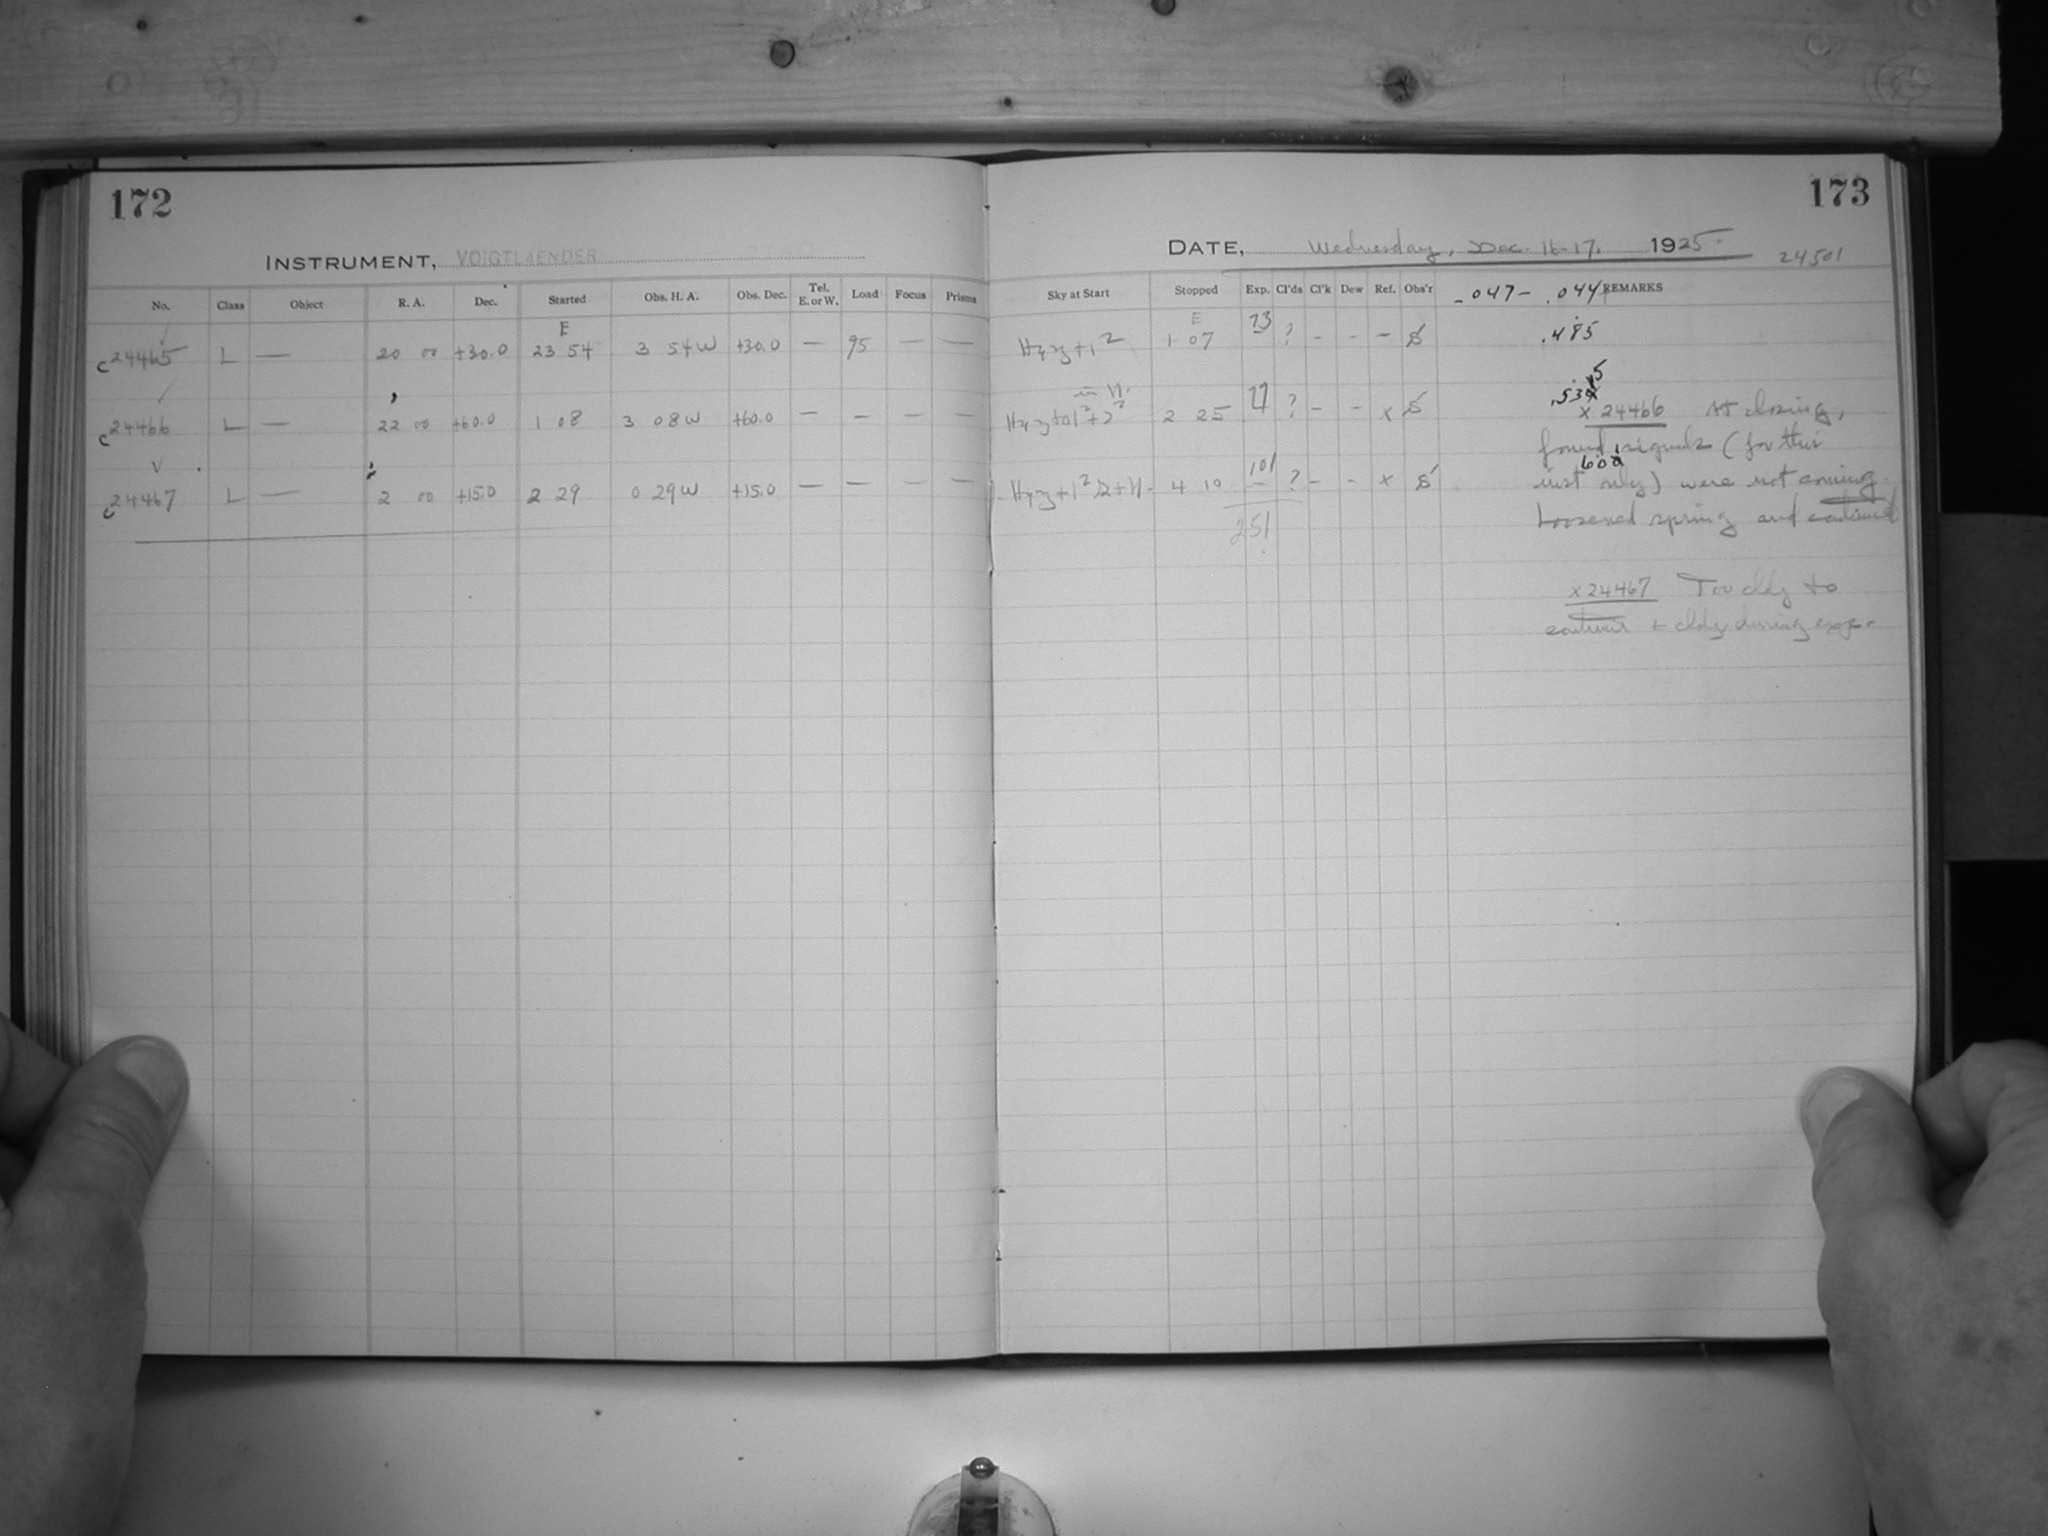 172
INSTRUMENT, VOIGTLAENDER
No. Class Object R. A. Dec. Started Obs. H. A. Obs. Dec. Tel. E. or W. Load Focus Prisms
E
c 24465 L — 20 00 +30.0 23 54 3 54 W +30.0 — 95 — —
c 24466 L — 22 00 +60.0 1 08 3 08 W +60.0 — — — —
c 24467 L — 2 00 +15.0 2 29 0 29 W +15.0 — — — —
173
DATE, Wednesday, Dec. 16-17, 1925- 24501
Sky at Start Stopped Exp. Cl'ds Cl'k Dew Ref. Obs'r .047- .044 REMARKS
E
1 07 73 ? - - - S .485
in N.
2 25 77 ? - - x S
x 24466 At closing,
found signals (for this
.602
4 10 101 ? - - x S inst only) were not coming.
251 Loosened spring and continued
x 24467 Too cldy to
continue + cldy during exp.